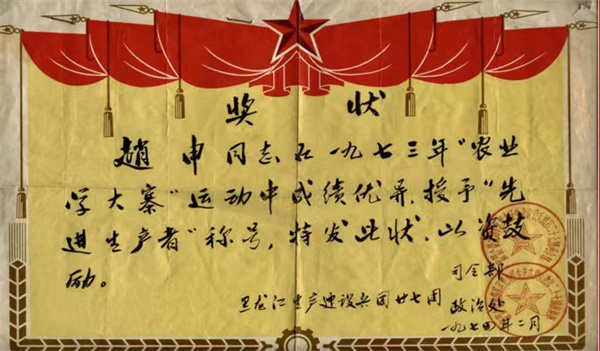 奖状
趙申同志在一九七三年“农业
学大寨”运动中成绩优异，授予“先
进生产者”称号，特发此状，以资鼓
励。
司令部
黑龙江生产建设兵团廿七团
政治处
一九七四年二月